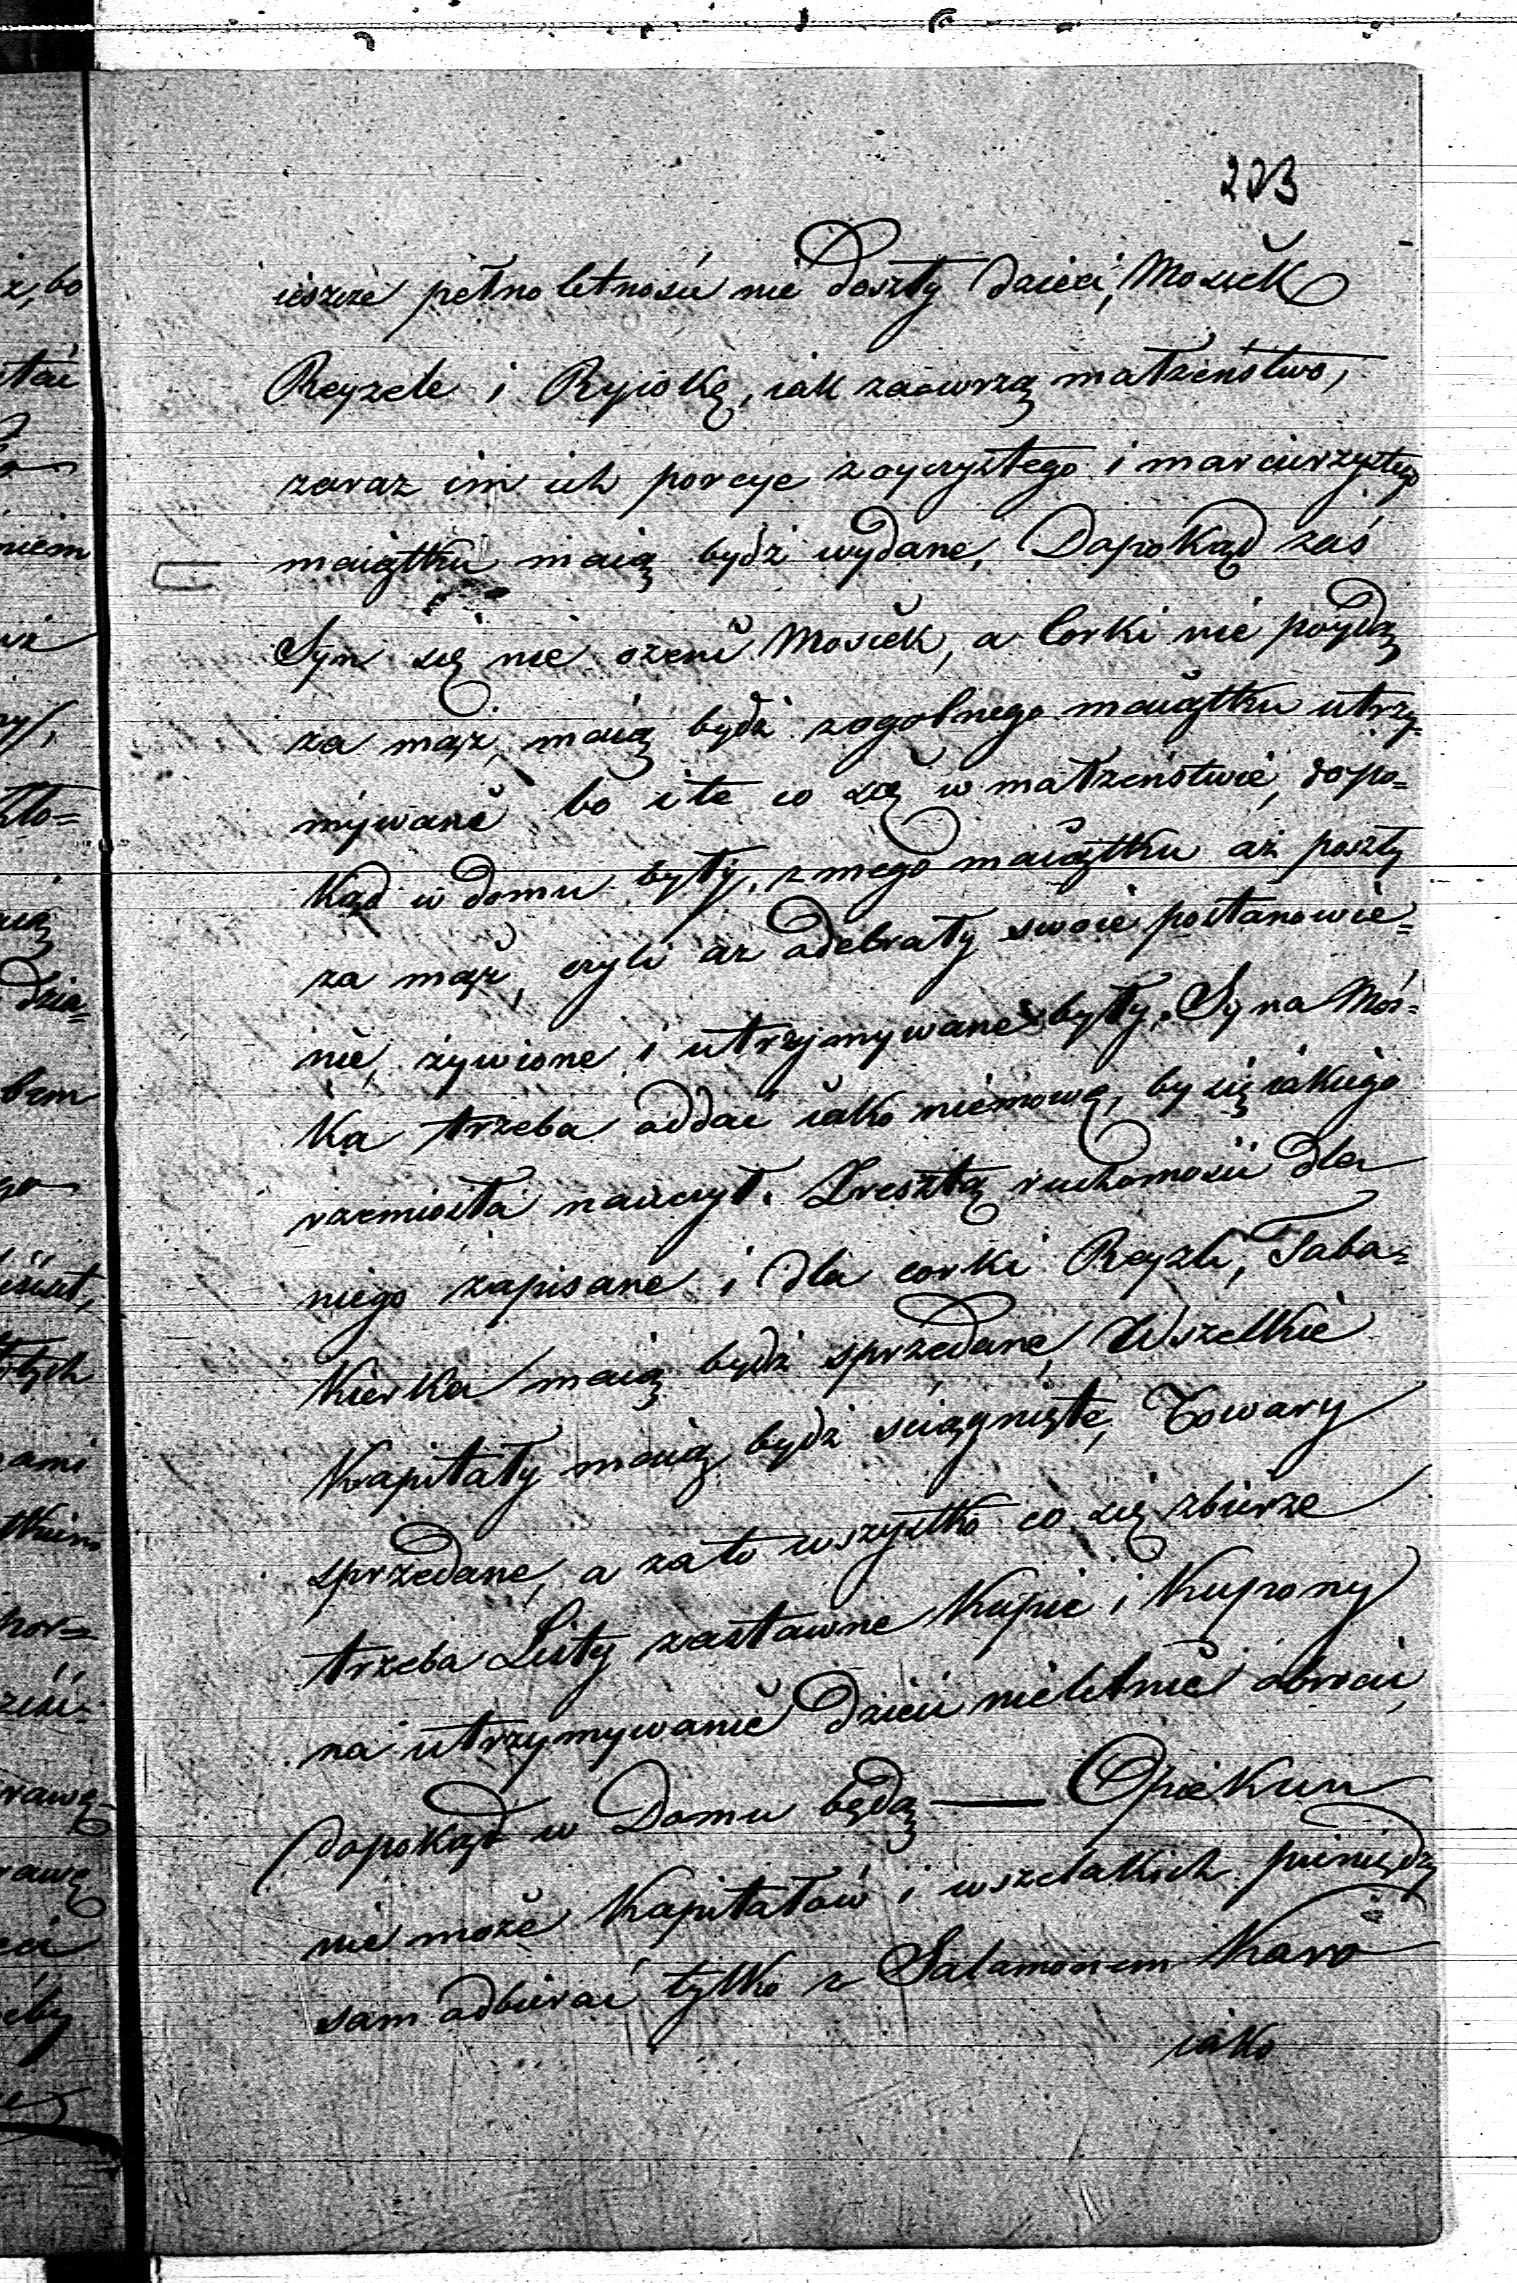 223
ieszcze pełnoletności nie doszły dzieci, Mosiek
Reyzele i Ryiokę, iak zaowrzą małżeństwo,
zaraz im ich porcye z oyczystego i marcierzystego
maiątku maią bydź wydane, Dopokąd zaś
Syn się nie ożeni Mosiek, a Corki nie poydą
za mąż, maią bydź z ogolnego maiątku utrzy-
mywane bo i te co są w małżeństwie, dopo-
kąd w domu były, z mego maiątku aż poszły
za mąż, czyli aż odebrały swoie postanowie=
nie, żywione i utrzymywane były. Syna Moś-
ka trzeba oddać iako niemowę, by się iakiego
rzemiosła nauczył. Zresztą ruchomości dla
niego zapisane i dla corki Reyzli, Taba=
kierka maią bydź sprzedane, Wszelkie
Kapitały maią bydź sciągnięte, Towary
sprzedane, a za to wszystko co się zbierze
trzeba Listy zastawne kupić i Kupony
na utrzymywanie dzieci nieletnie obrocić,
dopokąd w Domu będą — Opiekun
nie może Kapitałow i wszelakich pieniędzy
sam odbierać tylko z Salamonem Karo
iako